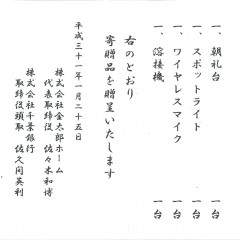 一、朝礼台 一台
一、スポットライト 一台
一、ワイヤレスマイク 一台
一、溶接機 一台
右のとおり
寄贈品を贈呈いたします
平成三十一年一月二十五日
株式会社金太郎ホーム
代表取締役 佐々木和博
株式会社千葉銀行
取締役頭取 佐久間英利